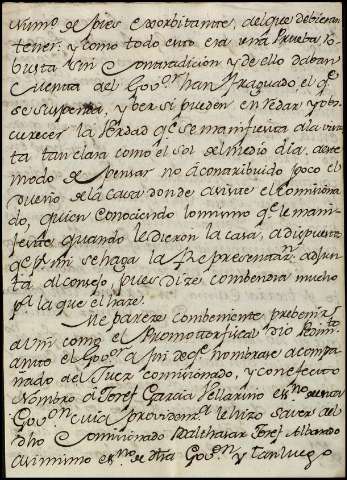 Num.o de Pies exorbitante, del que debieran
tener: y como todo esto era una Prueba ro-
busta sin Contradicion, y de ello daban
Cuenta al Gov.on han fraguado el q.e
se suspenda, y ver si pueden enrredar y obs-
curecer la verdad q.e se manifiesta a la vis-
ta tan clara como el Sol del medio dia. a este
modo de Pensar no a contribuido poco el
Dueño de la Casa donde a vivir el Comisiona-
do, quien conociendo lo mismo q.e le mani-
festé, quando le dieron la casa, a dispuesto
q.e p.r mi se haga la Representaz.n adjun-
ta al consejo, pues dize combendria mucho
p.a la que el hare.
Me pareze combeniente prebenir
a Vm como el Promottor fiscal dio Pedim.to
ante el Gov.on a fin de q.e nombrase acompa-
nado del Juez comisionado, y con efecto
Nombro a Josef Garcia Vellarino es.no de esta
Gov.on cuia providenz.a le hizo saver al
dho Comisionado Balthasar Josef Albarado
asimismo es.no de dha Gov.on y tan luego